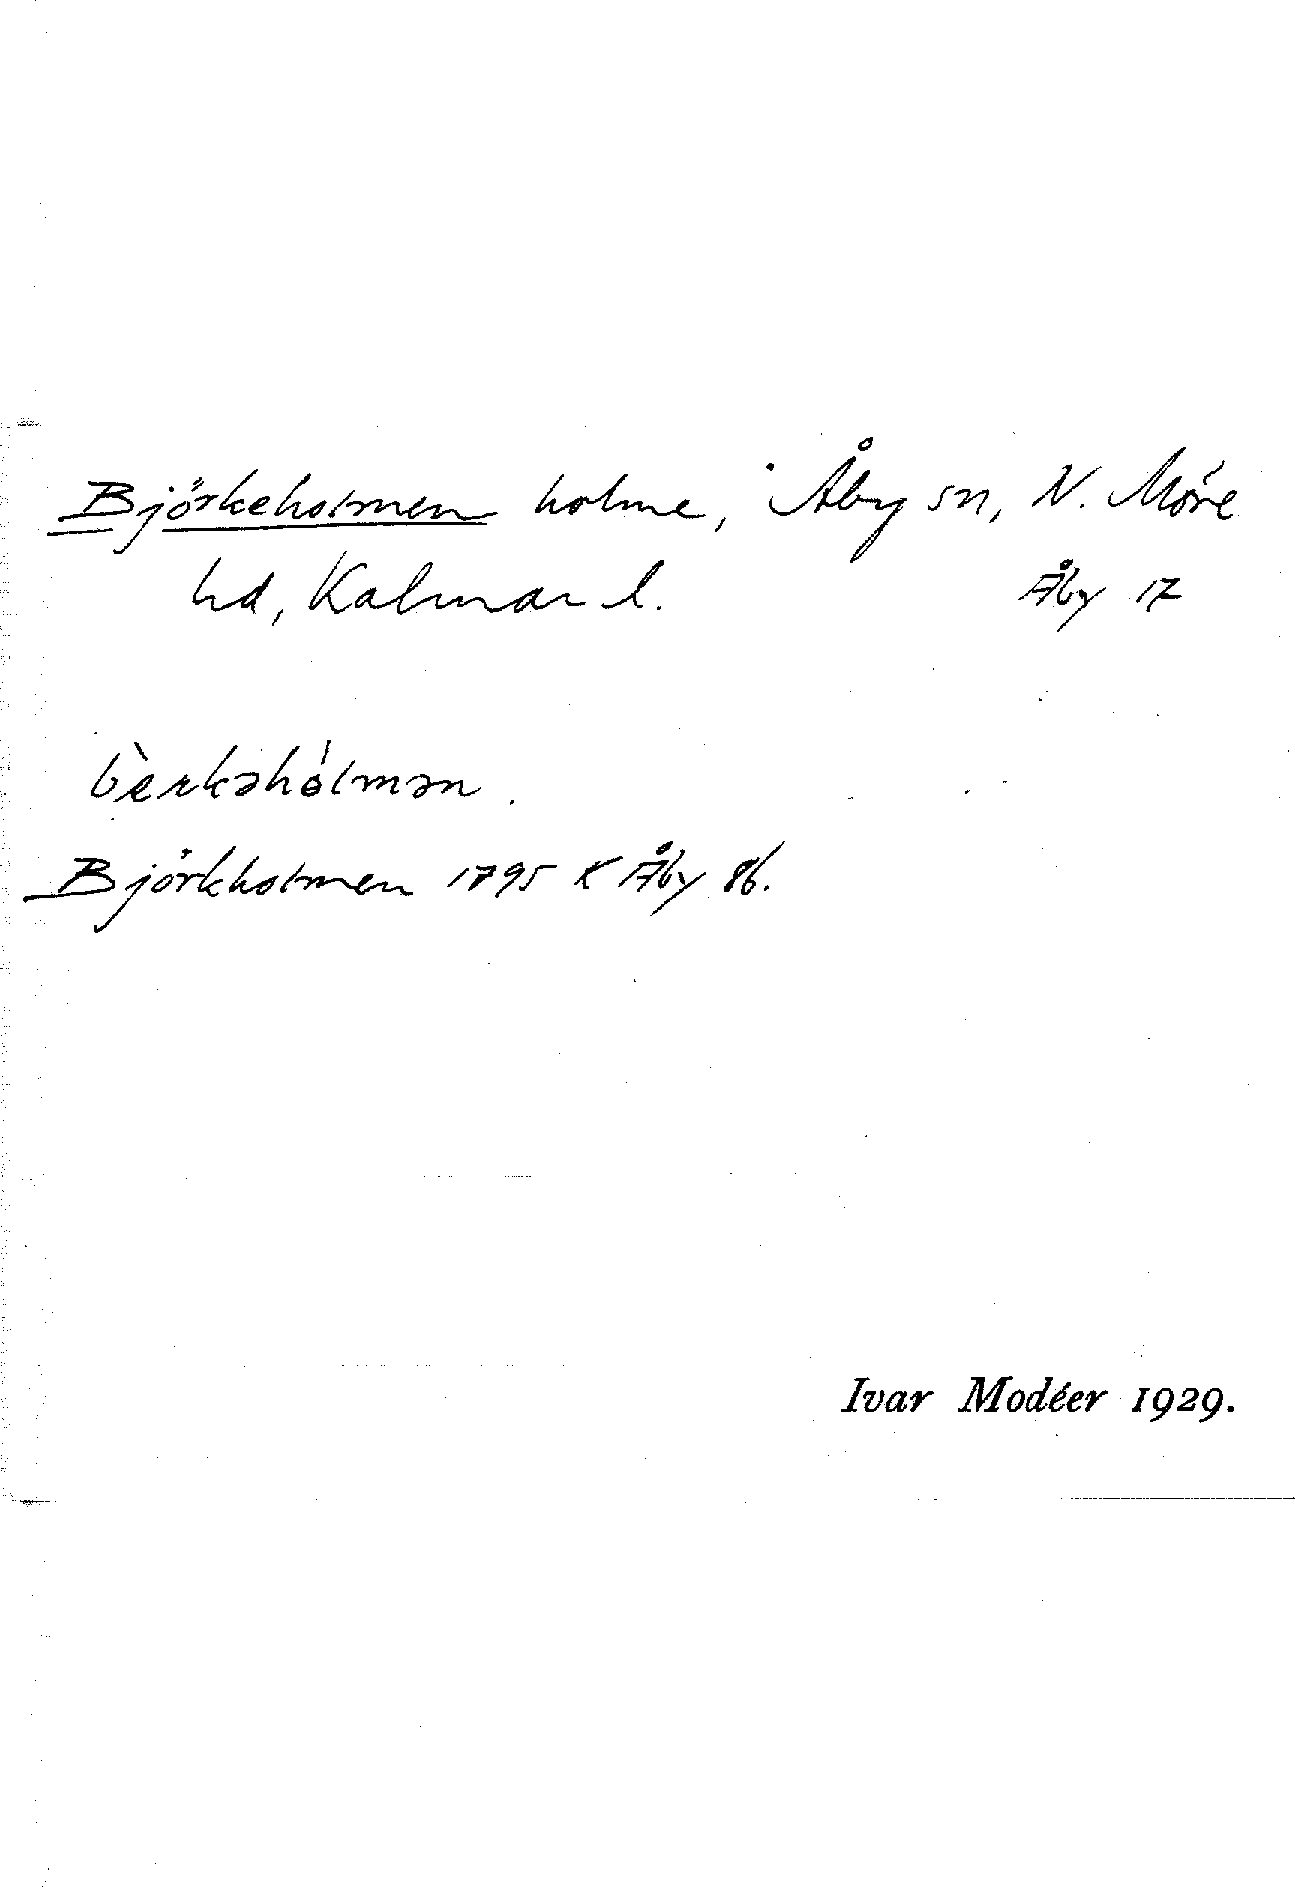 Björkeholmen holme, Åby sn, N. Möre
hd, Kalmar l. Åby 17
bèrkəhólmən.
Björkholmen 1795 K Åby 86.
Ivar Modéer 1929.